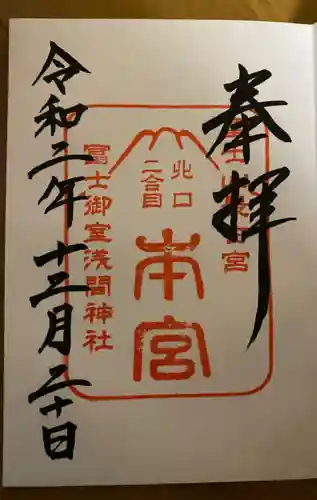 奉拝
北口
二合目
本宮
冨士御室浅間神社
令和二年十二月二十日